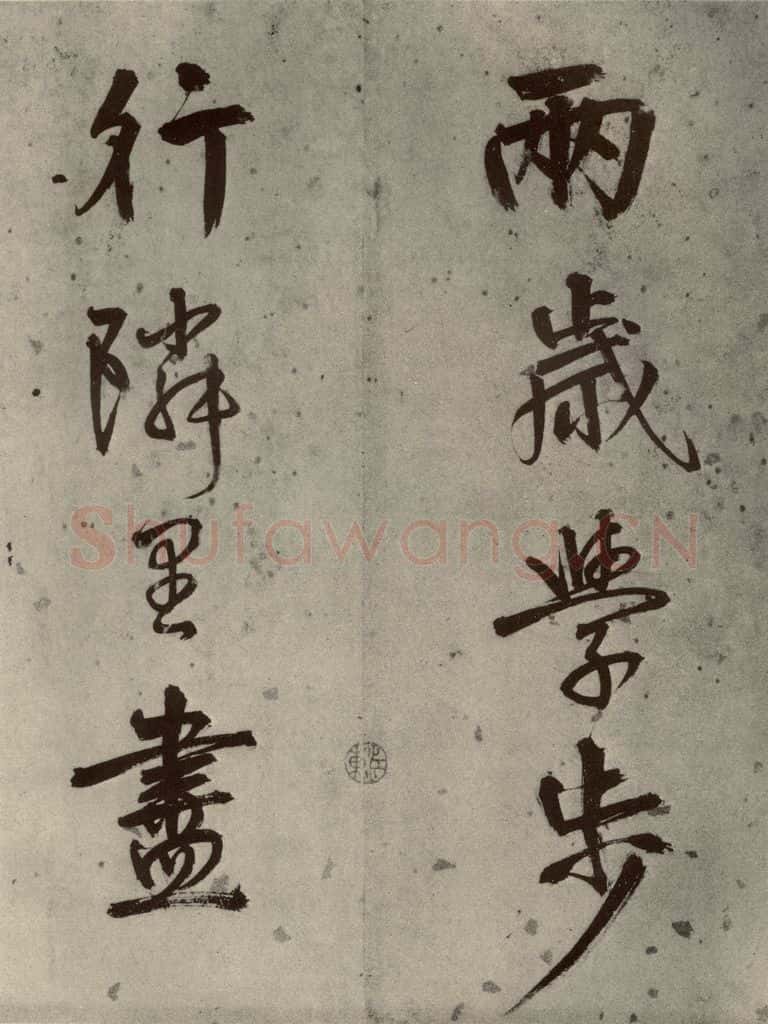 兩歲學步
行隣里盡
Shufawang.CN